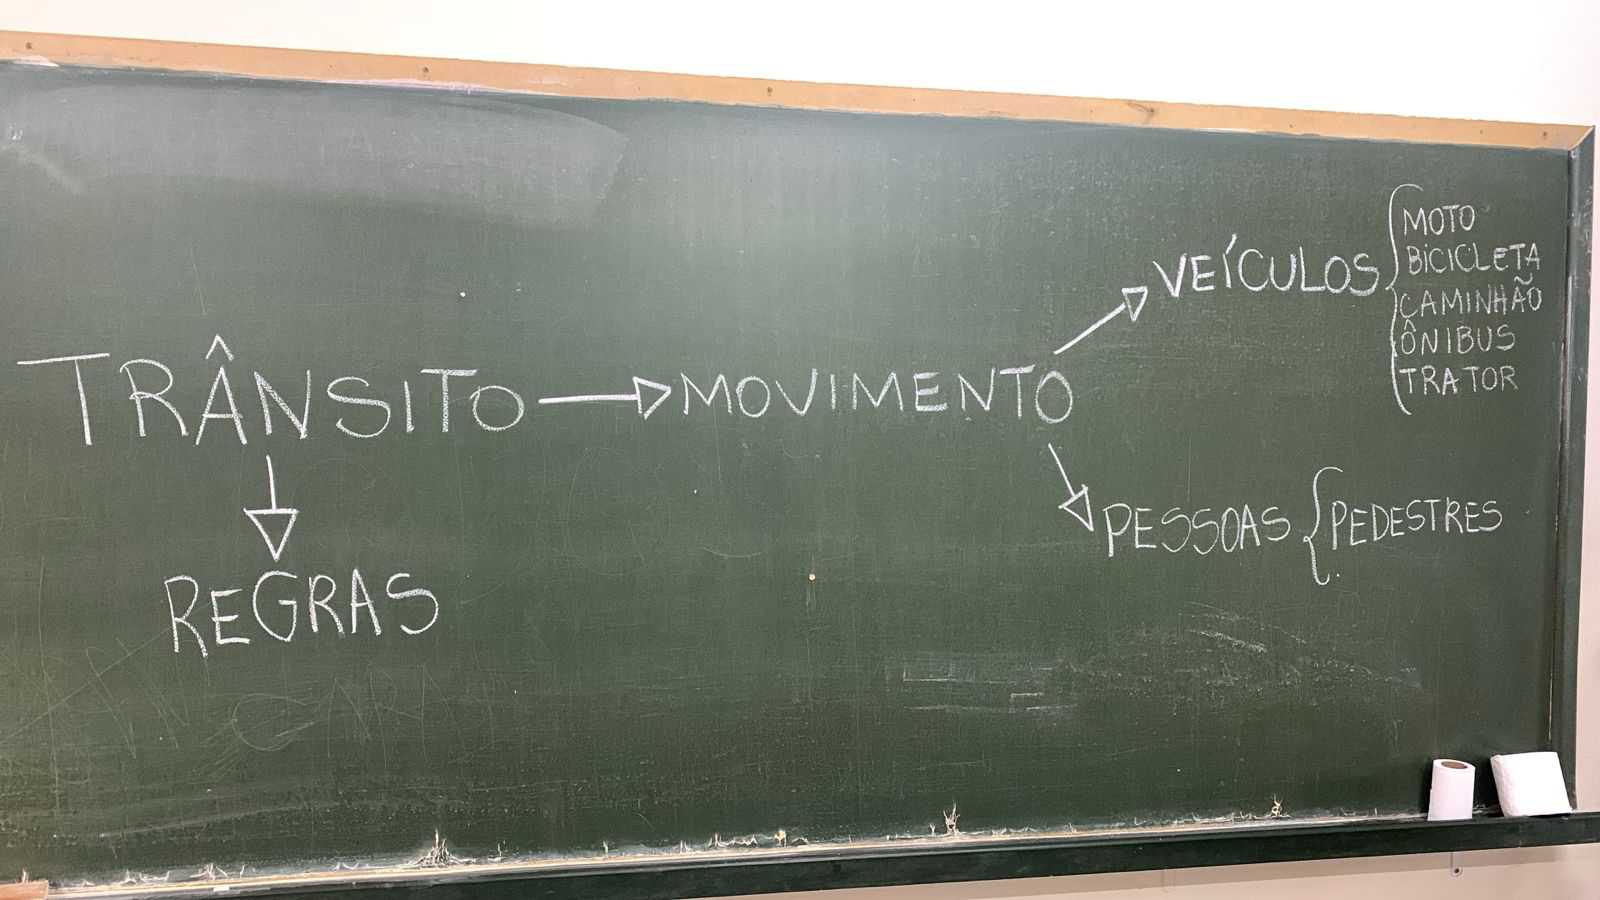 TRÂNSITO
MOVIMENTO
VEÍCULOS
MOTO
BICICLETA
CAMINHÃO
ÔNIBUS
TRATOR
PESSOAS
PEDESTRES
REGRAS